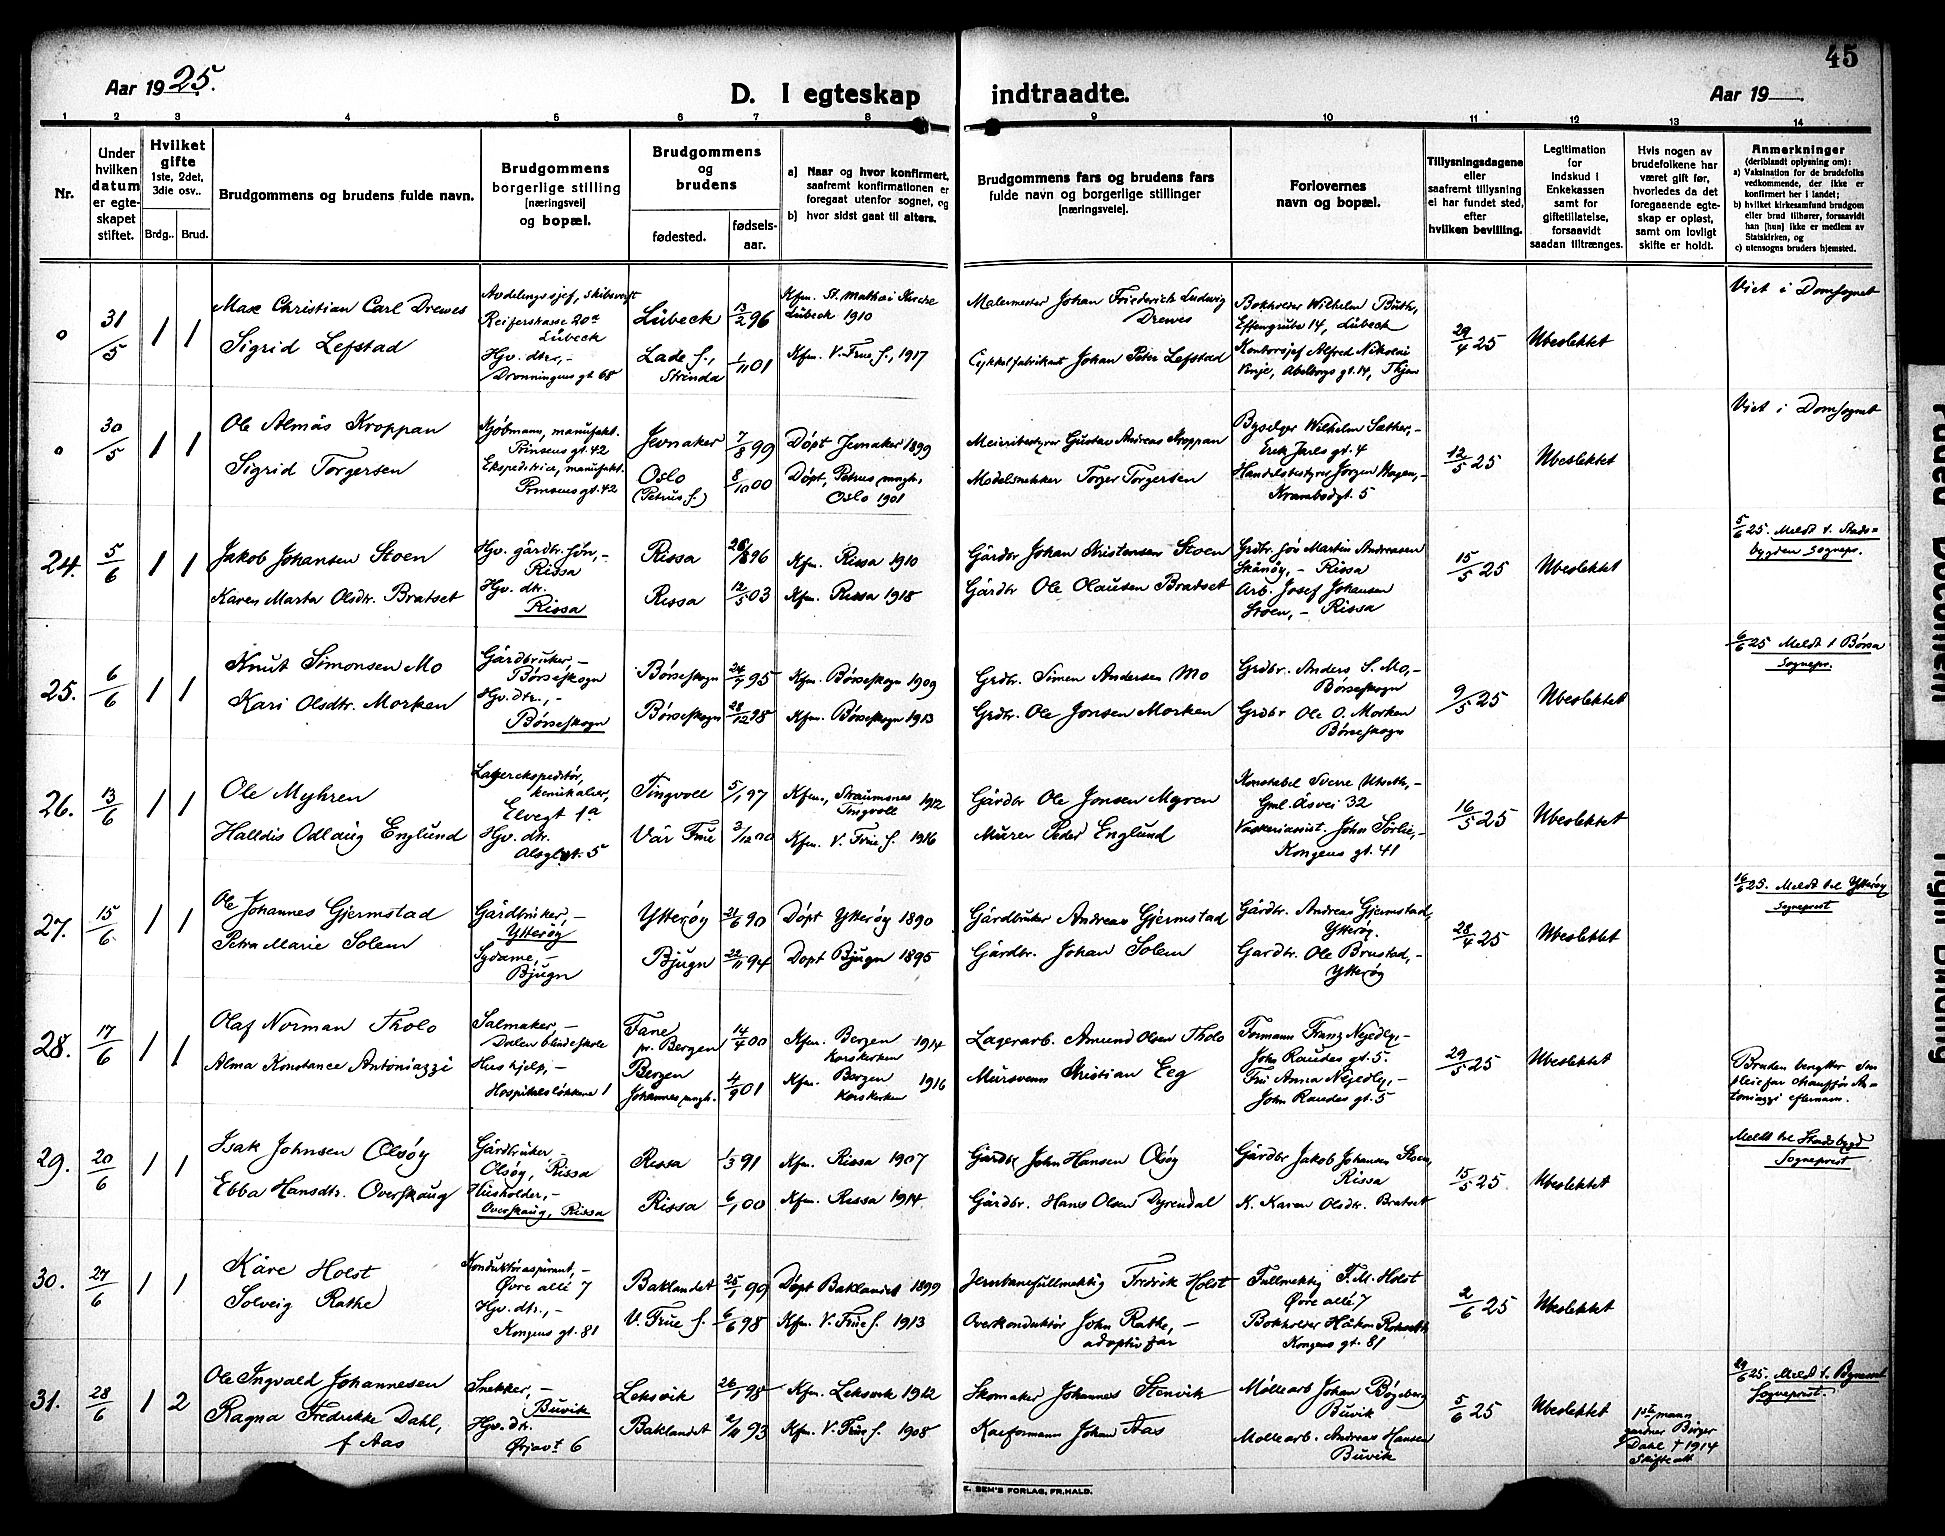 45
Aar 1925.
D. I egteskap indtraadte.
Aar 19
1 2 3 4 5 6 7 8 9 10 11 12 13 14
Nr.
Under hvilken datum er egteskapet stiftet.
Hvilket gifte
1ste, 2det, 3die osv..
Brdg.. Brud.
Brudgommens og brudens fulde navn.
Brudgommens borgerlige stilling [næringsvei] og bopæl.
Brudgommens og brudens
fødested.
fødsels-aar.
a) Naar og hvor konfirmert, saafremt konfirmationen er foregaat utenfor sognet, og
b) hvor sidst gaat til alters.
Brudgommens fars og brudens fars fulde navn og borgerlige stillinger [næringsveie].
Forlovernes navn og bopæl.
Tillysningsdagene eller saafremt tillysning ei har fundet sted, efter hvilken bevilling.
Legitimation for indskud i Enkekassen samt for giftetillatelse, forsaavidt saadan tiltrænges.
Hvis nogen av brudefolkene har været gift før, hvorledes da det foregaaende egteskap er opløst, samt om lovligt skifte er holdt.
Anmerkninger
(deriblandt oplysning om):
a) Vaksination for de brudefolks vedkommende, der ikke er konfirmert her i landet;
b) hvilket kirkesamfund brudgom eller brud tilhører, forsaavidt han [hun] ikke er medlem av Statskirken, og
c) utensogns bruders hjemsted.
o 31/5 1 1
Max Christian Carl Drewes
Sigrid Lefstad
Avdelingssjef, Skibsverft
Reiferstrasse 20a
Lübeck
Hgv. dtr., -
Dronningens gt 68
Lübeck 13/2 96
Lade s., Strinda 1/11 01
Kfm. St. Mathäi Kirche
Lübeck 1910
Kfm. V. Frue s., 1917
Malermester Johan Friederich Ludwig
Drewes
Cykkelfabrikant Johan Peter Lefstad
Bokholder Wilhelm Büth,
Effengrube 14, Lübeck
Kontorsjef Alfred Nikolai
Vinje, Abelsborgs gt. 14, Thjem
29/4 25
Ubeslektet
Viet i Domsognet
o 30/5 1 1
Ole Almås Kroppan
Sigrid Torgersen
Kjøbmann, manufakt.
Prinsens gt. 42
Ekspeditrice, manufakt.
Prinsens gt. 42
Jevnaker 7/8 99
Oslo
(Petrus s.) 8/10 00
Døpt Jevnaker 1899
Døpt, Petrus mngh.
Oslo 1901
Meieribestyrer Gustav Andreas Kroppan
Modelsnekker Torger Torgersen
Byselger Wilhelm Sæther, -
Erik Jarls gt. 4
Handelsbestyrer Jørgen Hagen, -
Krambodgt. 5
12/5 25
Ubeslektet
Viet i Domsognet
24. 5/6 1 1
Jakob Johansen Stoen
Karen Marta Olsdtr. Bratset
Hgv. gårdbr. søn, -
Rissa
Hgv. dtr.
Rissa
Rissa 26/8 96
Rissa 12/5 03
Kfm. Rissa 1910
Kfm. Rissa 1918
Gårdbr Johan Kristensen Stoen
Gårdbr Ole Olausen Bratset
Grdbr. søn Martin Andreasen
Skånøy, - Rissa
Arb. Josef Johansen
Stoen, - Rissa
15/5 25
Ubeslektet
5/6 25. Meldt t. Stads=
bygden Sognepr.
25. 6/6 1 1
Knut Simonsen Mo
Kari Olsdtr. Morken
Gårdbruker, -
Børseskogn
Hgv. dtr., -
Børseskogn
Børseskogn 24/7 95
Børseskogn 28/12 98
Kfm. Børseskogn 1909
Kfm. Børseskogn 1913
Grdbr. Simen Andersen Mo
Grdbr. Ole Jonsen Morken
Grdbr. Anders S. Mo, -
Børseskogn
Grdbr Ole O. Morken
Børseskogn
9/5 25
Ubeslektet
6/6 25 Meldt t Børsa
Sognepr.
26. 13/6 1 1
Ole Myhren
Halldis Odlaug Englund
Lagerekspeditør,
kemikalier,
Elvegt 1a
Hgv. dtr.
Tingvoll 5/1 97
Vår Frue 3/12 00
Kfm., Straumsnes
Tingvoll 1912
Kfm. V. Frue s. 1916
Gårdbr Ole Jonsen Myren
Murer Peder Englund
Konstabel Sverre Utseth, -
Gml. Åsvei 32
Vaskeriassist. John Sørlie, -
Kongens gt. 41
16/5 25
Ubeslektet
27. 15/6 1 1
Ole Johannes Gjermstad
Petra Marie Solem
Gårdbruker, -
Ytterøy
Sydame, -
Bjugn
Ytterøy 21/6 90
Bjugn 22/11 94
Døpt Ytterøy 1890
Døpt Bjugn 1895
Gårdbruker Andreas Gjermstad
Gårdbr. Johan Solem
Gårdbr. Andreas Gjermstad,
Ytterøy.
Gardbr. Ole Brustad, -
Ytterøy
28/4 25
Ubeslektet
16/6 25. Meldt til Ytterøy
Sogneprest
28. 17/6 1 1
Olaf Norman Tholo
Alma Konstance Antoniazzi
Salmaker, -
Dalen blindeskole
Hushjelp, -
Hospitalsløkkene 1
Fane
pr. Bergen 14/4 00
Bergen
Johannes mngh. 4/9 01
Kfm. Bergen 1914
Korskirken
Kfm. Bergen 1916
Korskirken
Lagerarb. Amund Olsen Tholo
Mursvenn Kristian Eeg
Formann Franz Nejedly, -
John Raudes gt. 5.
Fru Anna Nejedly, -
John Raudes gt. 5
29/5 25
Ubeslektet
Bruden benytter sin
pleiefar chauffør An=
toniazzi efternavn.
29. 20/6 1 1
Isak Johnsen Olsøy
Ebba Hansdtr. Overskaug
Gårdbruker -
Olsøy, Rissa
Husholder, -
Overskaug, Rissa
Rissa 1/3 91
Rissa 6/1 00
Kfm. Rissa 1907
Kfm. Rissa 1914.
Gårdbr John Hansen Olsøy
Gårdbr. Hans Olsen Dyrendal
Gårdbr Jakob Johansen Stoen,
Rissa
K. Karen Olsdtr. Bratset
15/5 25
Ubeslektet
Meldt til Stadsbygd
Sogneprest
30. 27/6 1 1
Kåre Holst
Solveig Rathe
Konduktøraspirant, -
Øvre allé 7
Hgv. dtr., -
Kongens gt. 81
Baklandet 25/1 99
V. Frue s. 6/6 98
Døpt Baklandet 1899
Kfm. V. Frue s. 1913
Jernbanefullmektig Fredrik Holst
Overkonduktør John Rathe, -
adoptivfar
Fullmektig F. M. Holst
Øvre allé 7
Bokholder Håkon Rokseth
Kongens gt. 81
2/6 25
Ubeslektet
31. 28/6 1 2
Ole Ingvald Johannesen
Ragna Fredrikke Dahl,
f Aas
Snekker, -
Buvik
Hgv. dtr.
Leksvik 26/1 98
Baklandet 2/11 93
Kfm. Leksvik 1912
Kfm. V. Frue s. 1908
Skomaker Johannes Stenvik
Karformann Johan Aas
Møllearb Johan Bøgeberg
Buvik
Møllearb. Andreas Hansen
Buvik
5/6 25
Ubeslektet
1ste mann
gardner Birger
Dahl † 1914
Skifte att
29/6 25. Meldt t. Byneset
Sogneprest.
E. SEM'S FORLAG, FR.HALD.
Faded Document
Tight Binding